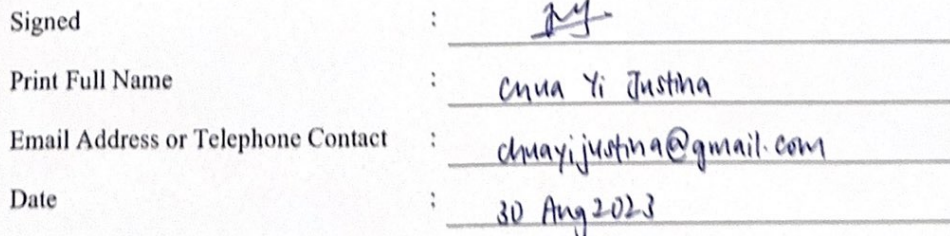 Signed :
Print Full Name : Chua Yi Justina
Email Address or Telephone Contact : chuayijustina@gmail.com
Date : 30 Aug 2023